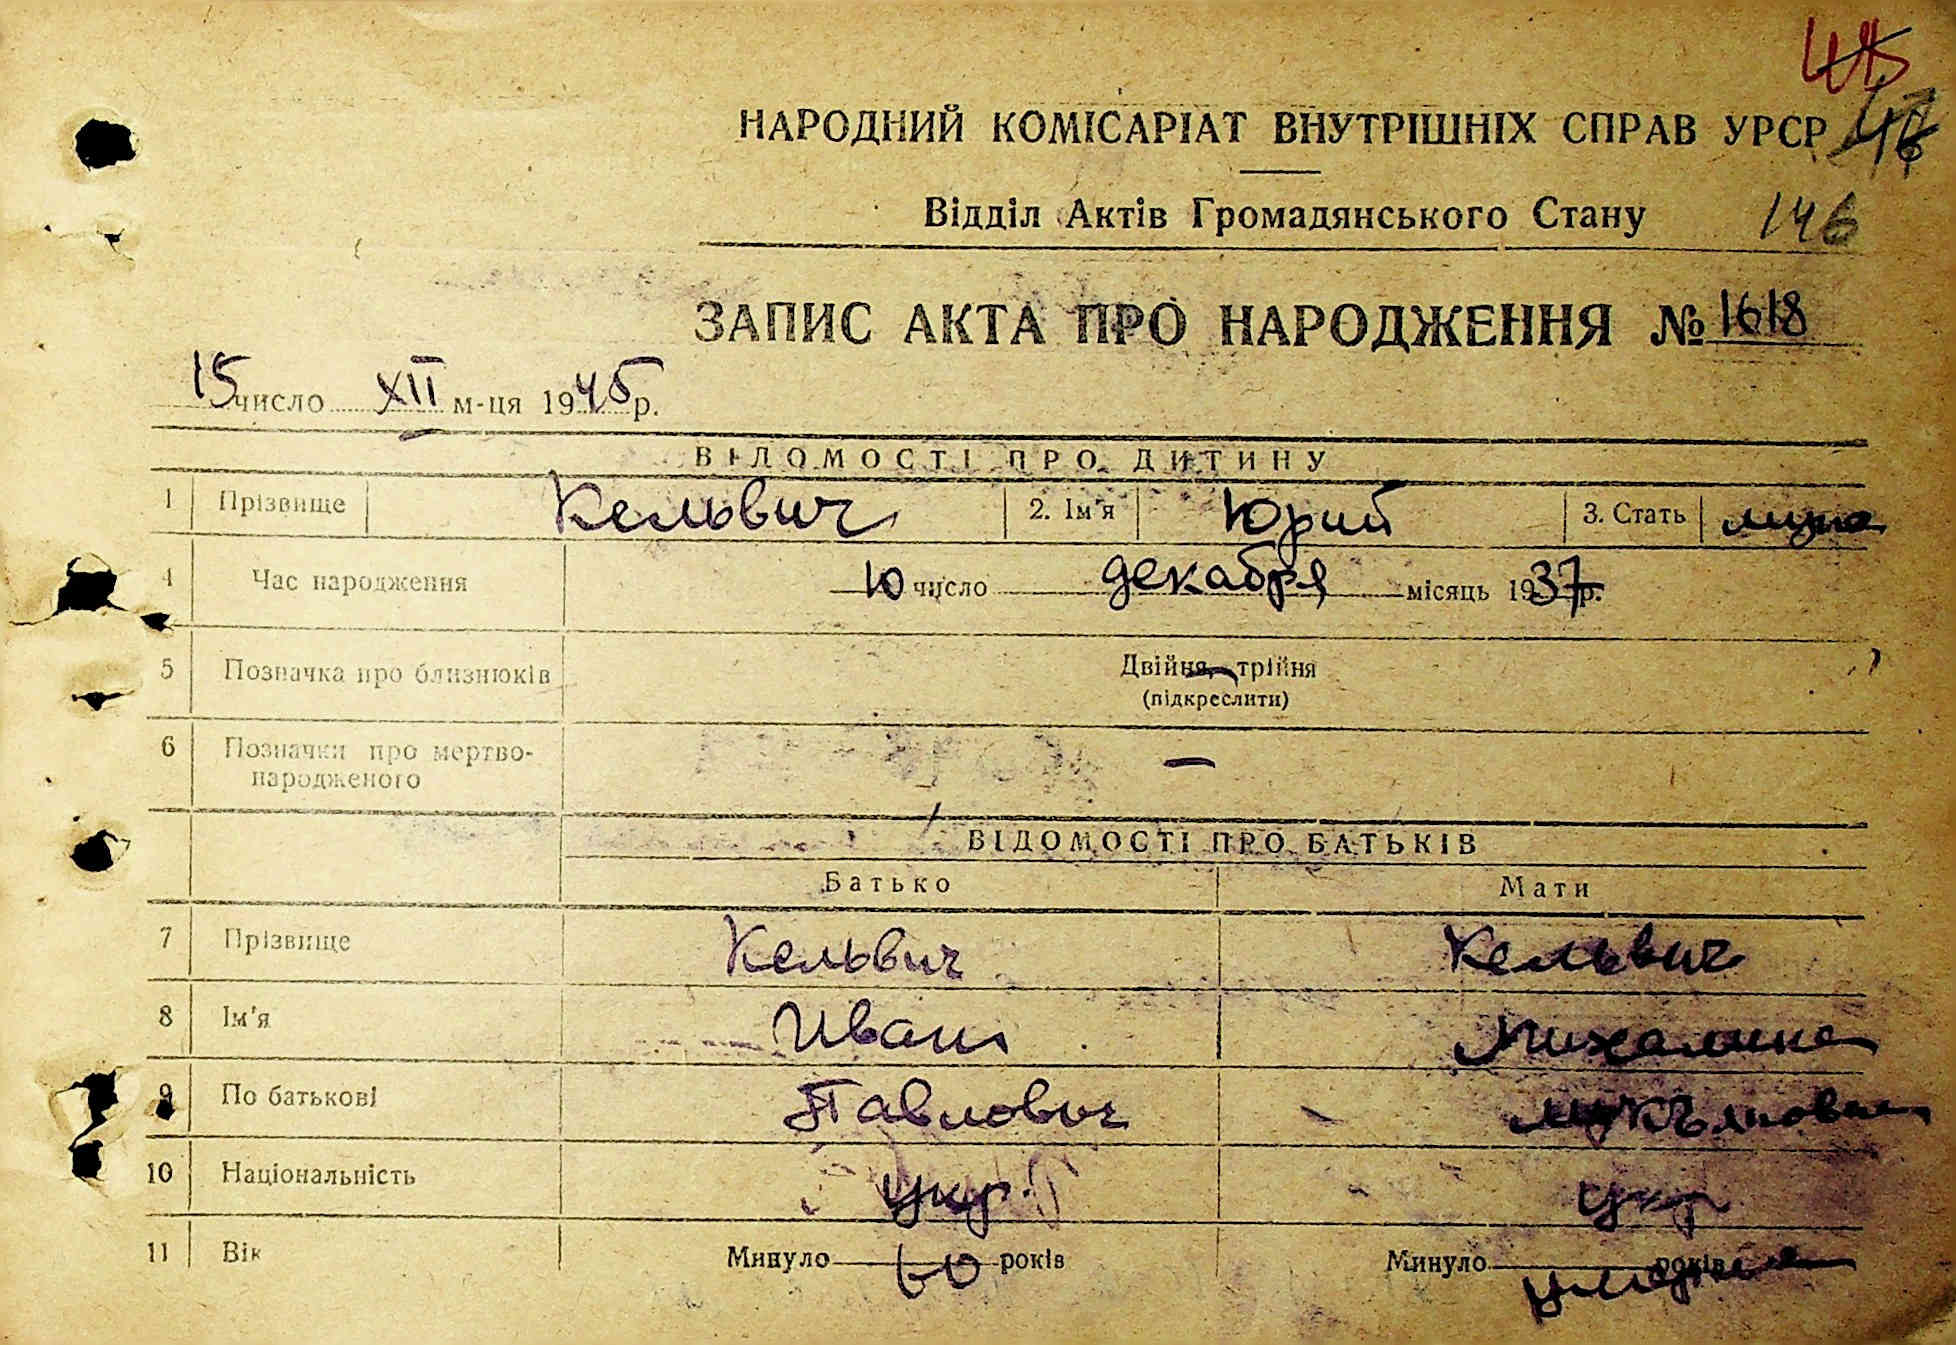 НАРОДНИЙ КОМІСАРІАТ ВНУТРІШНІХ СПРАВ УРСР
Відділ Актів Громадянського Стану 146
ЗАПИС АКТА ПРО НАРОДЖЕННЯ № 1618
15 число XII м-ця 1945 р.
ВІДОМОСТІ ПРО ДИТИНУ
1 Прізвище Кельвич 2. Ім'я Юрий 3. Стать
4 Час народження 10 число декабря місяць 1937 р.
5 Позначка про близнюків Двійня, трійня
(підкреслити)
6 Позначки про мертво-
народженого —
ВІДОМОСТІ ПРО БАТЬКІВ
Батько Мати
7 Прізвище Кельвич Кельвич
8 Ім'я Иван Михалина
9 По батькові Павлович
10 Національність укр. укр
11 Вік Минуло 60 років Минуло років